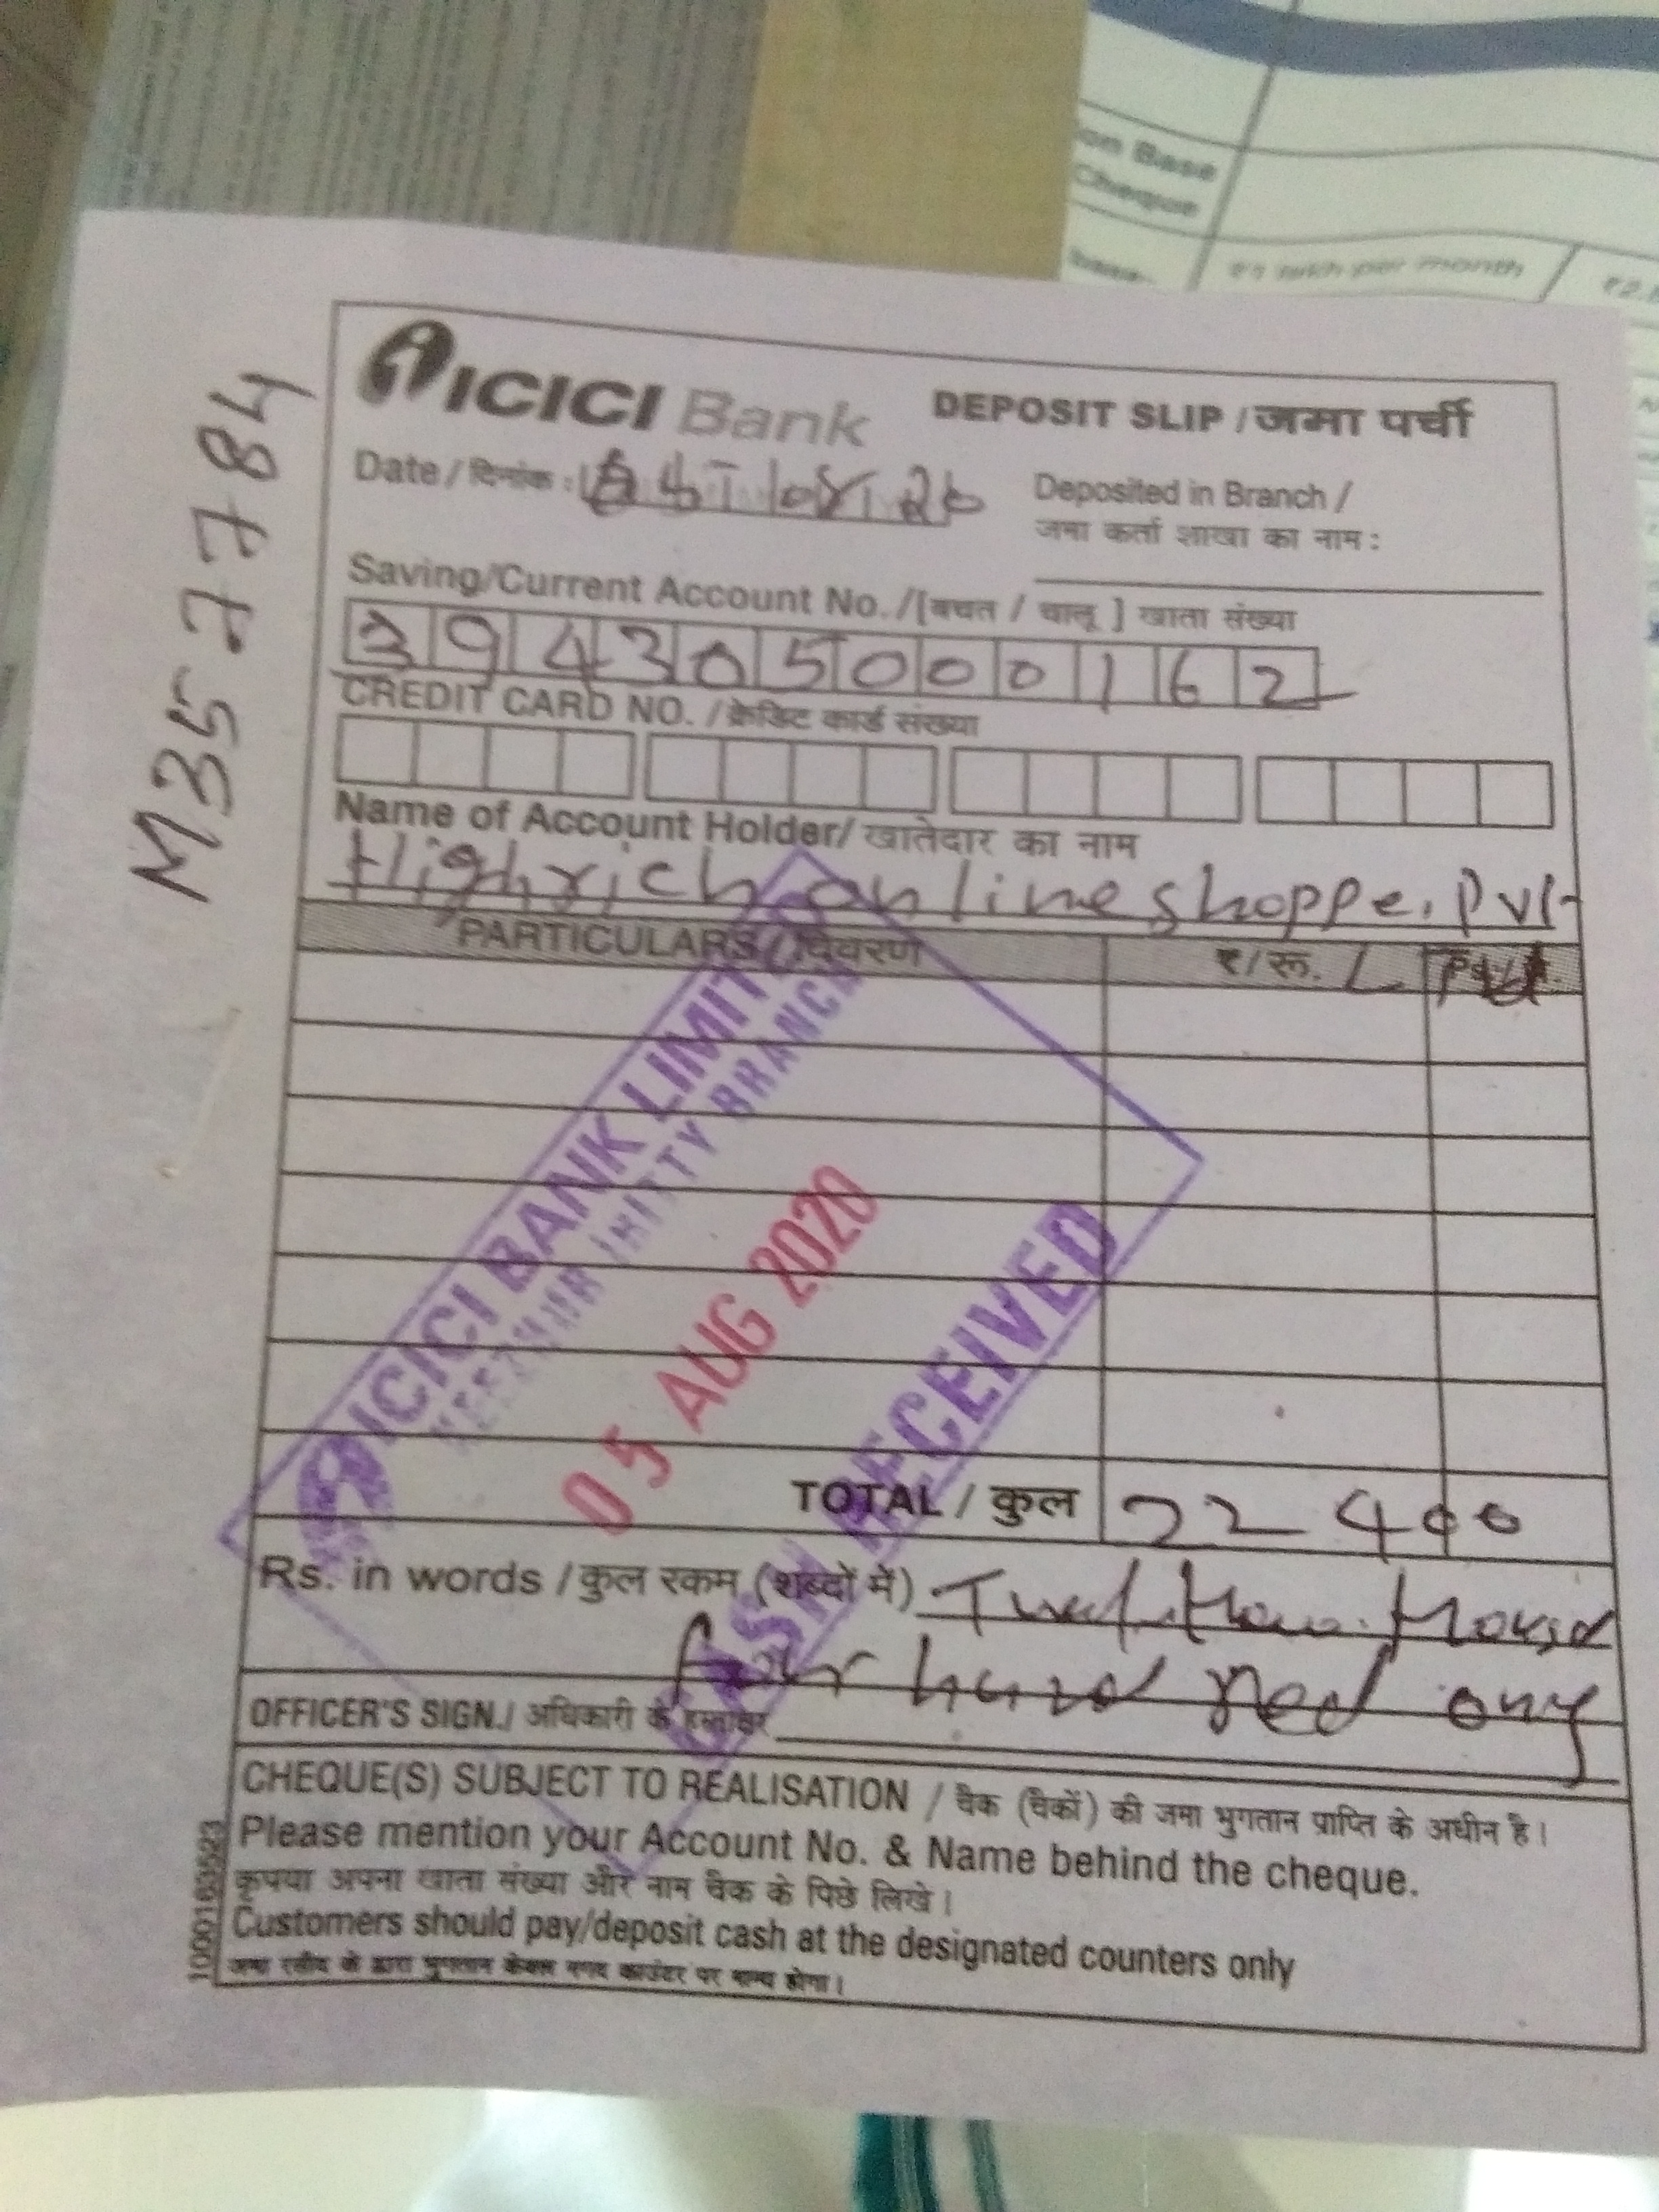 on Base
Cheque
₹1 lakh per month
M3577784
ICICI Bank
DEPOSIT SLIP / जमा पर्ची
Date / दिनांक :
Deposited in Branch /
जमा कर्ता शाखा का नाम :
Saving/Current Account No. / [बचत / चालू ] खाता संख्या
394305000162
CREDIT CARD NO. / क्रेडिट कार्ड संख्या
Name of Account Holder/ खातेदार का नाम
Highrich online shoppe. Pvt
PARTICULARS / विवरण ₹/रू. L
ICICI BANK LIMITED
BRANCH
05 AUG 2020
CASH RECEIVED
TOTAL / कुल 22 400
Rs. in words / कुल रकम (शब्दों में)
four hund red ony
OFFICER'S SIGN./ अधिकारी के हस्ताक्षर
CHEQUE(S) SUBJECT TO REALISATION / चैक (चैकों) की जमा भुगतान प्राप्ति के अधीन है।
Please mention your Account No. & Name behind the cheque.
कृपया अपना खाता संख्या और नाम चैक के पिछे लिखे।
Customers should pay/deposit cash at the designated counters only
जमा रसीद के द्वारा भुगतान केवल नगद काउंटर पर मान्य होगा।